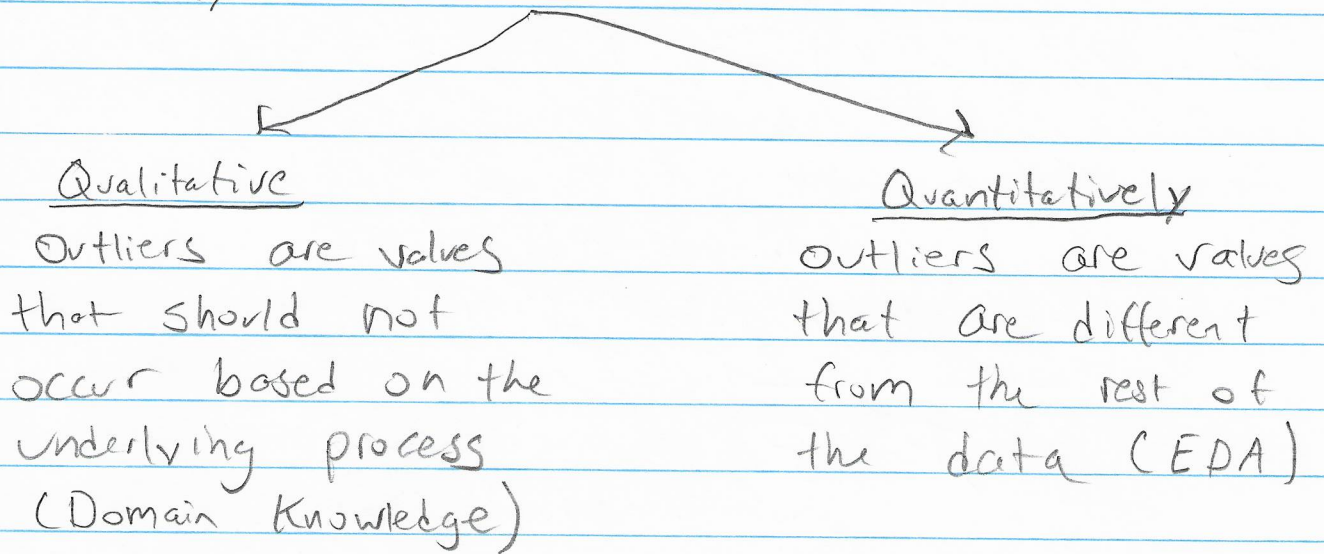 Qualitative
Outliers are values
that should not
occur based on the
underlying process
(Domain Knowledge)
Quantitatively
Outliers are values
that are different
from the rest of
the data (EDA)